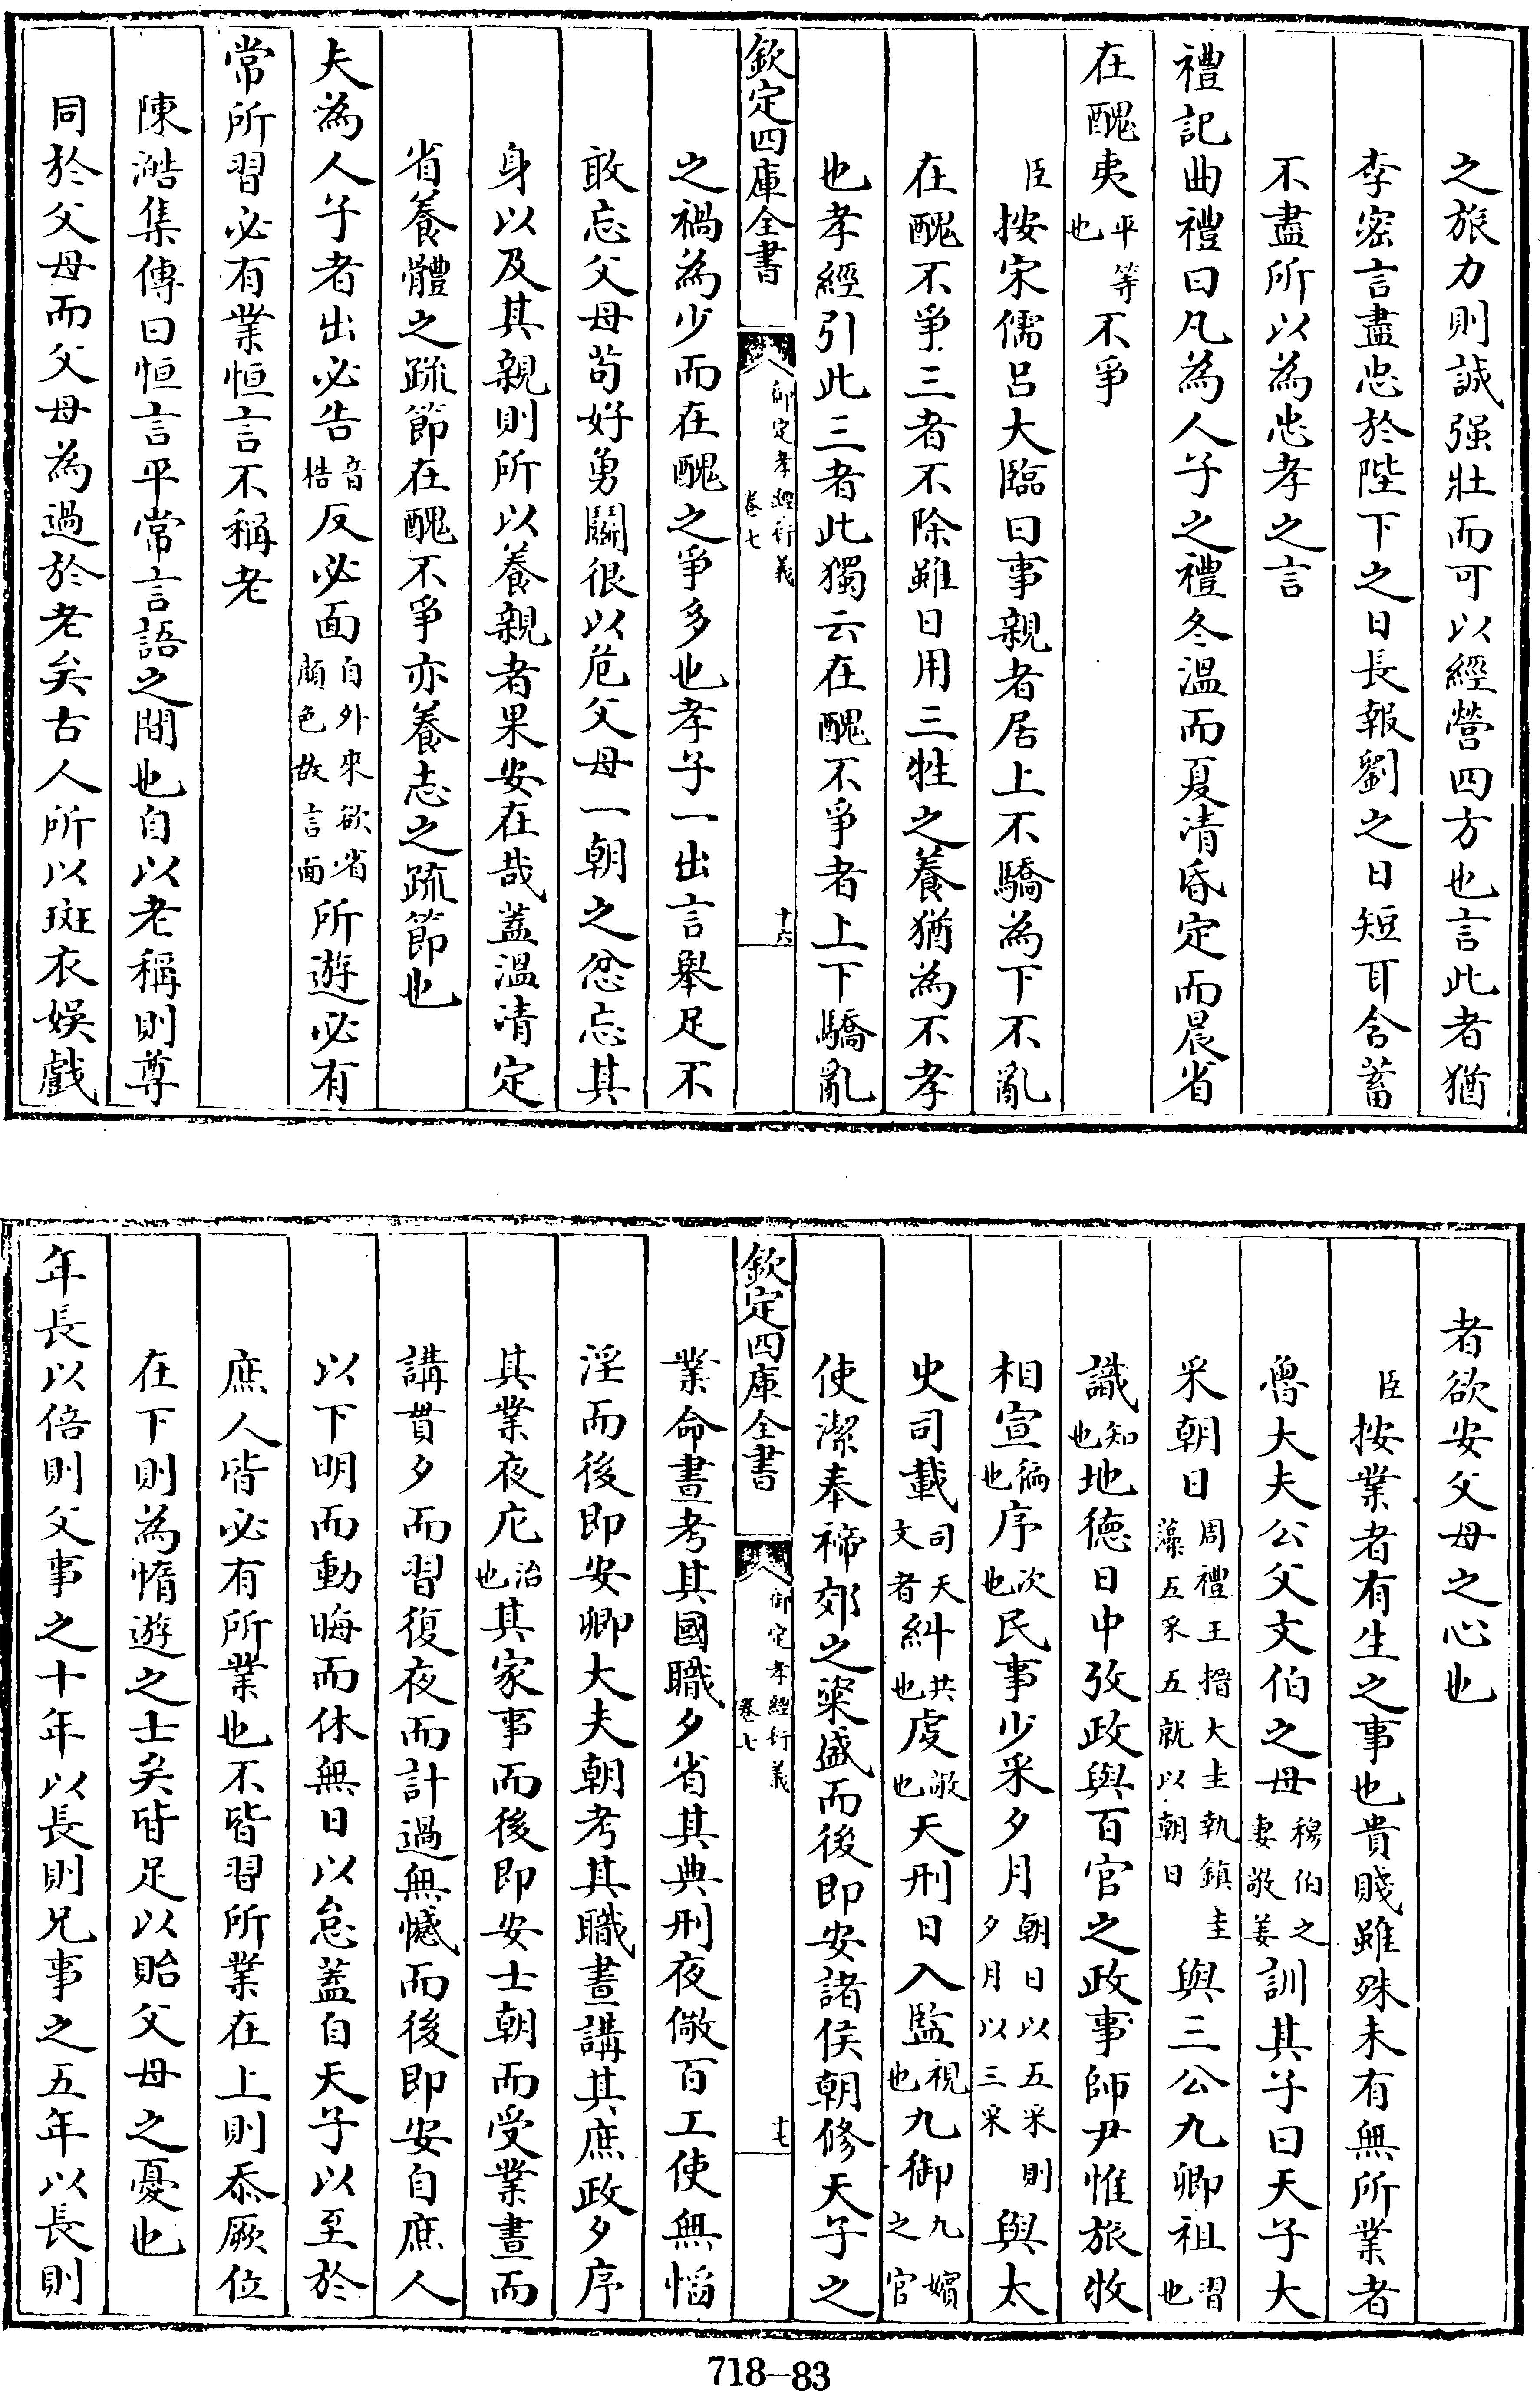 之旅力則誠强壯而可以經營四方也言此者猶
李密言盡忠於陛下之日長報劉之日短耳含蓄
不盡所以為忠孝之言
禮記曲禮曰凡為人子之禮冬溫而夏凊昏定而晨省
在醜夷平等也不爭
臣按宋儒呂大臨曰事親者居上不驕為下不亂
在醜不爭三者不除雖日用三牲之養猶為不孝
也孝經引此三者此獨云在醜不爭者上下驕亂
欽定四庫全書 御定孝經衍義 卷七 十六
之禍為少而在醜之爭多也孝子一出言舉足不
敢忘父母苟好勇鬭很以危父母一朝之忿忘其
身以及其親則所以養親者果安在哉蓋溫凊定
省養體之疏節在醜不爭亦養志之疏節也
夫為人子者出必告音梏反必面自外來欲省顏色故言面所遊必有
常所習必有業恒言不稱老
陳澔集傳曰恒言平常言語之間也自以老稱則尊
同於父母而父母為過於老矣古人所以斑衣娛戲
者欲安父母之心也
臣按業者有生之事也貴賤雖殊未有無所業者
魯大夫公父文伯之母穆伯之妻敬姜訓其子曰天子大
采朝日周禮王搢大圭執鎮圭藻五采五就以朝日與三公九卿祖習也
識知也地德日中攷政與百官之政事師尹惟旅牧
相宣徧也序次也民事少采夕月朝日以五采則夕月以三采與太
史司載司天文者糾共也虔敬也天刑日入監視也九御九嬪之官
使潔奉禘郊之粢盛而後即安諸侯朝修天子之
欽定四庫全書 御定孝經衍義 卷七 十七
業命晝考其國職夕省其典刑夜儆百工使無慆
淫而後即安卿大夫朝考其職晝講其庶政夕序
其業夜庀治也其家事而後即安士朝而受業晝而
講貫夕而習復夜而計過無憾而後即安自庶人
以下明而動晦而休無日以怠蓋自天子以至於
庶人皆必有所業也不皆習所業在上則忝厥位
在下則為惰遊之士矣皆足以貽父母之憂也
年長以倍則父事之十年以長則兄事之五年以長則
718-83